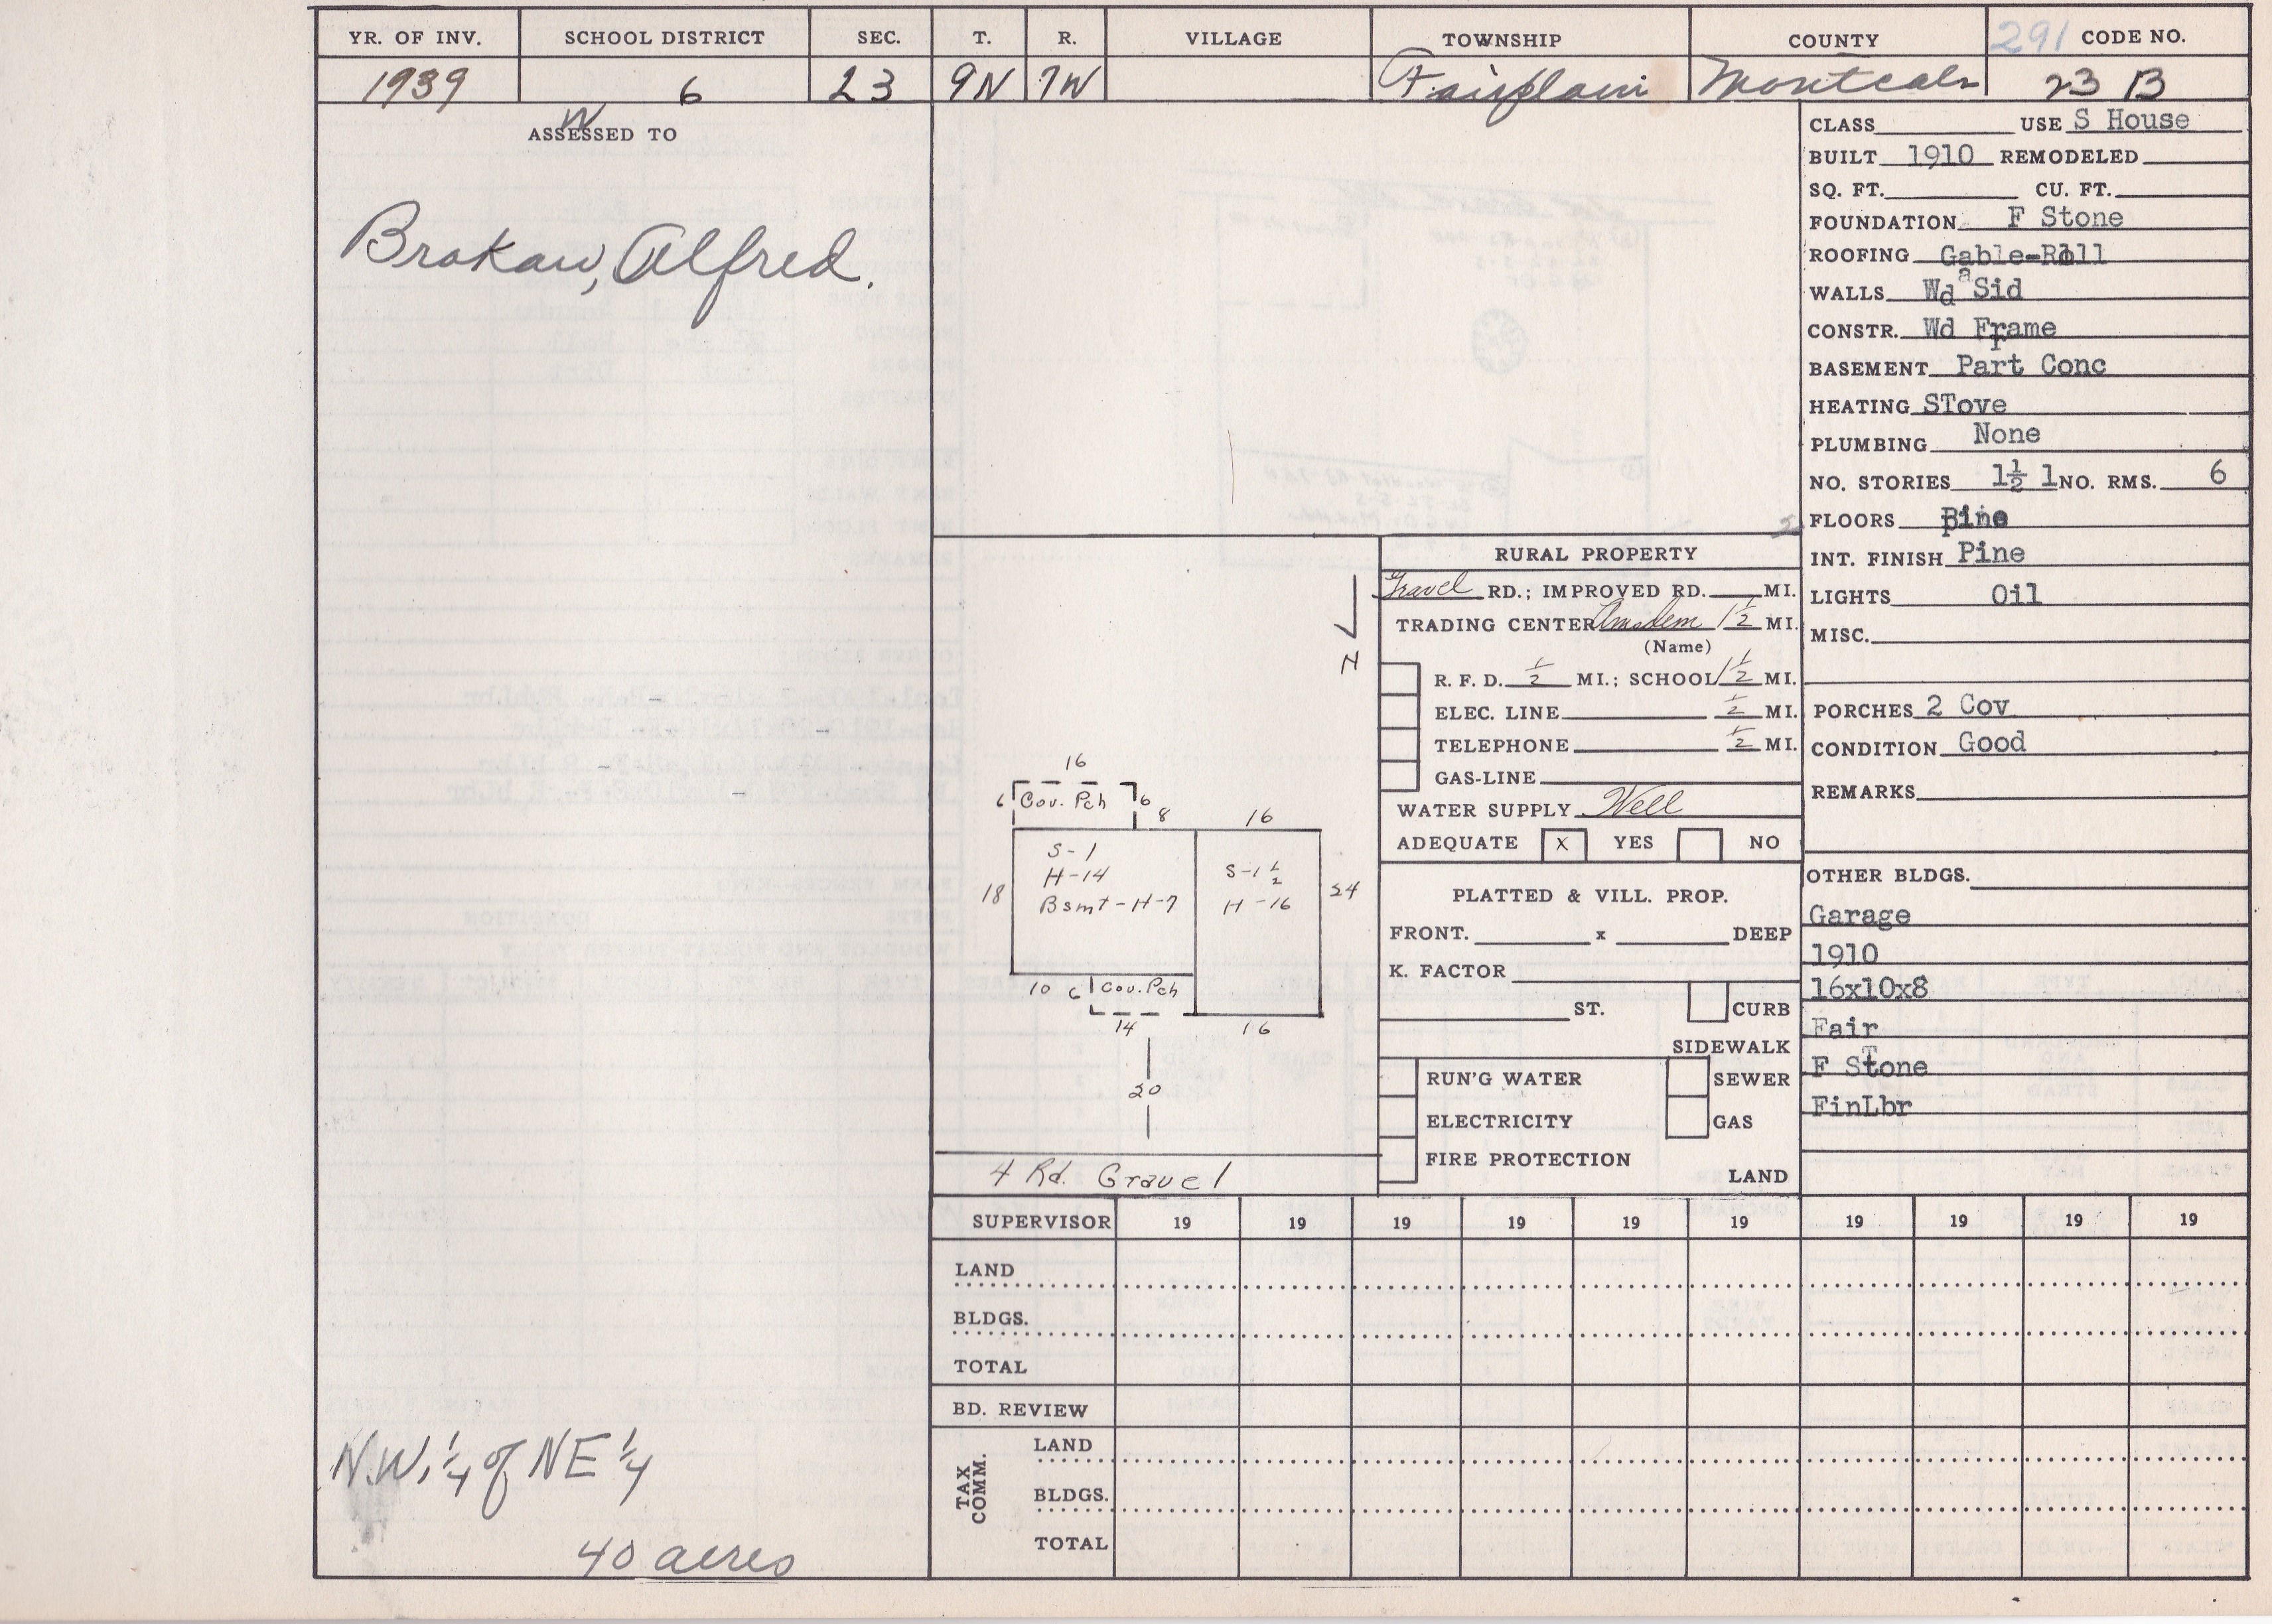 YR. OF INV. SCHOOL DISTRICT SEC. T. R. VILLAGE TOWNSHIP COUNTY 291 CODE NO.
1939 6 23 9N 7W Fairplain Montcalm 23 B
W
ASSESSED TO
Brokaw, Alfred.
N.W. 1/4 of NE 1/4
40 acres
N
16
6 Cov. Pch 6
8 16
S-1
H-14
Bsmt-H-7
18
S-1½
H-16
24
10 6 Cov. Pch
14 16
20
4 Rd. Gravel
RURAL PROPERTY
Gravel RD.; IMPROVED RD. MI.
TRADING CENTER Amsden 1½ MI.
(Name)
R. F. D. ½ MI.; SCHOOL 1½ MI.
ELEC. LINE ½ MI.
TELEPHONE ½ MI.
GAS-LINE
WATER SUPPLY Well
ADEQUATE x YES NO
PLATTED & VILL. PROP.
FRONT. x DEEP
K. FACTOR
ST. CURB
SIDEWALK
RUN'G WATER SEWER
ELECTRICITY GAS
FIRE PROTECTION
LAND
CLASS USE S House
BUILT 1910 REMODELED
SQ. FT. CU. FT.
FOUNDATION F Stone
ROOFING Gable-Roll
WALLS Wd Sid
CONSTR. Wd Frame
BASEMENT Part Conc
HEATING STove
PLUMBING None
NO. STORIES 1½ 1 NO. RMS. 6
FLOORS Pine
INT. FINISH Pine
LIGHTS Oil
MISC.
PORCHES 2 Cov
CONDITION Good
REMARKS
OTHER BLDGS.
Garage
1910
16x10x8
Fair
F Stone
FinLbr
SUPERVISOR 19 19 19 19 19 19 19 19 19 19
LAND
BLDGS.
TOTAL
BD. REVIEW
TAX COMM.
LAND
BLDGS.
TOTAL